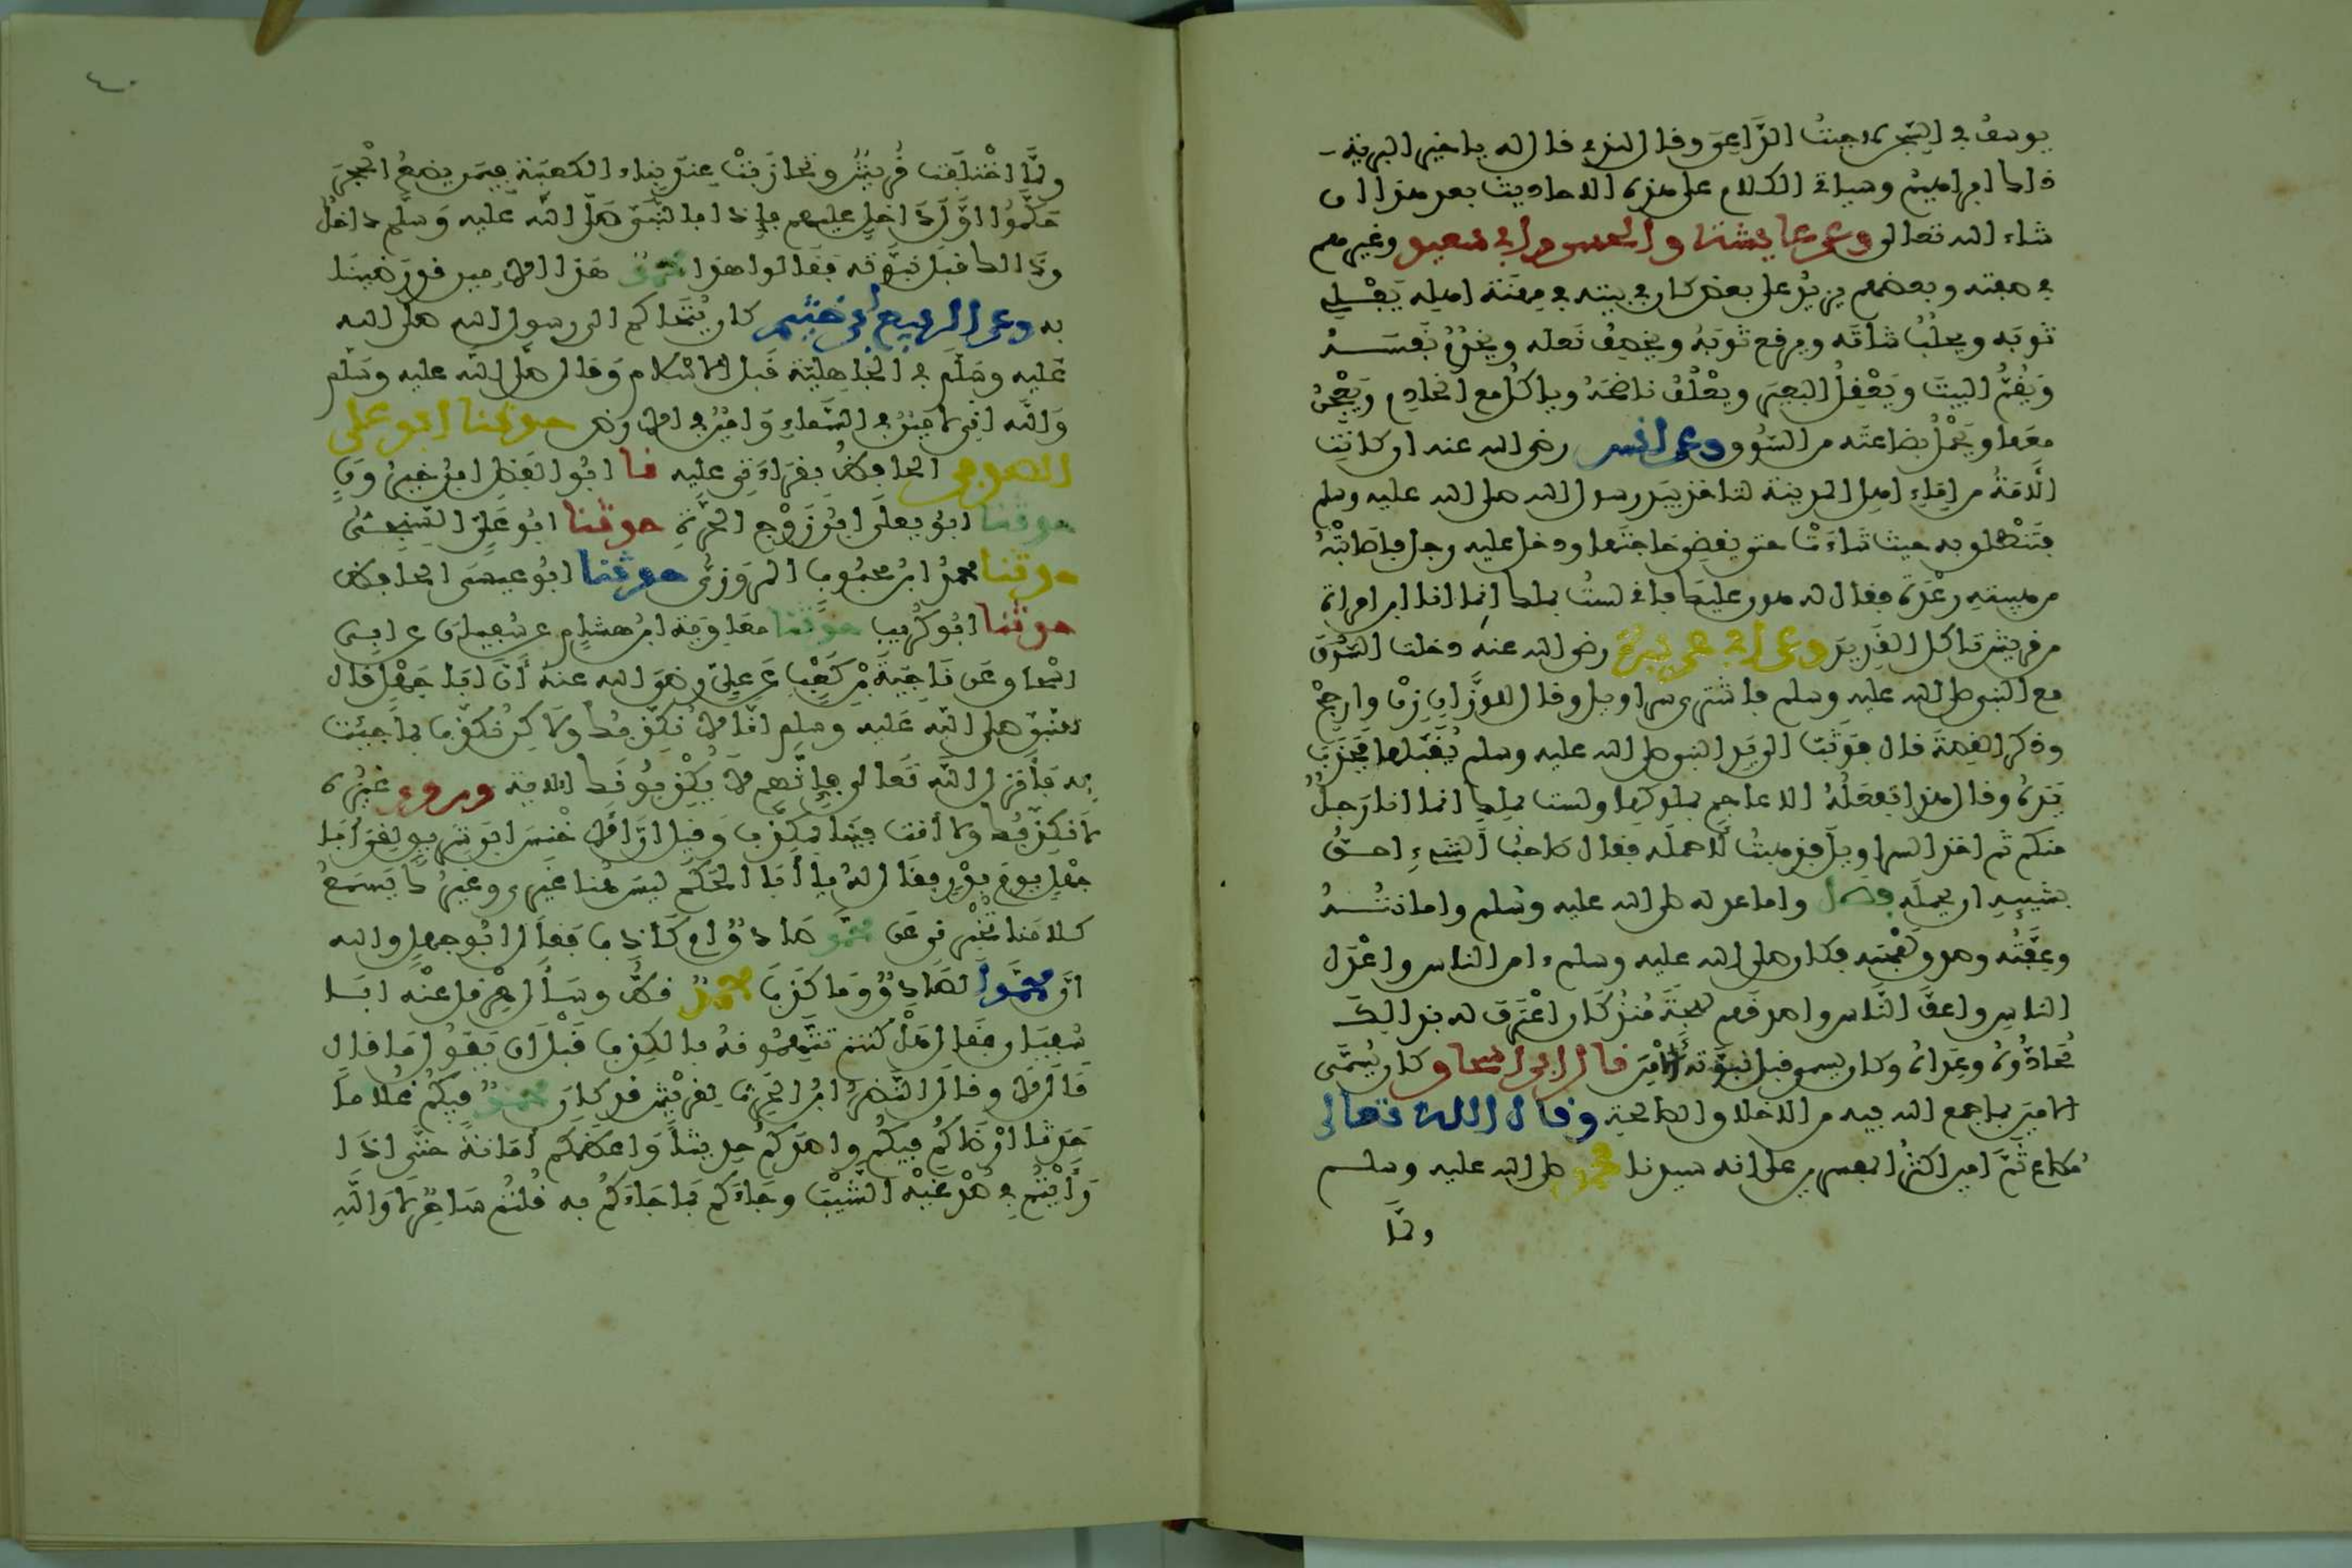 يوسف في السجن لاجبت الداعي وقال للذي قال له يا خير البرية
ذاك ابراهيم وسياتي الكلام على هذه الاحاديث بعد هذا ان
شاء الله تعالى وعن عايشة والحسن وابي سعيد وغيرهم
في صفته وبعضهم يزيد على بعض كان في بيته في مهنة اهله يفلي
ثوبه ويحلب شاته ويرقع ثوبه ويخصف نعله ويخدم نفسه
ويقم البيت ويعقل البعير ويعلف ناضحه وياكل مع الخادم ويعجن
معها ويحمل بضاعته من السوق وعن انس رضي الله عنه ان كانت
الامة من اماء اهل المدينة لتاخذ بيد رسول الله صلى الله عليه وسلم
فتنطلق به حيث شاءت حتى يقضي حاجتها ودخل عليه رجل فاصابته
من هيبته رعدة فقال له هون عليك فاني لست بملك انما انا ابن امراة
من قريش تاكل القديد وعن ابي هريرة رضي الله عنه دخلت السوق
مع النبي صلى الله عليه وسلم فاشترى سراويل وقال للوزان زن وارجح
وذكر القصة قال فوثب الى يد النبي صلى الله عليه وسلم يقبلها فجذب
يده وقال هذا تفعله الاعاجم بملوكها ولست بملك انما انا رجل
منكم ثم اخذ السراويل فذهبت لاحمله فقال صاحب الشيء احق
بشيئه ان يحمله فصل واما عدله صلى الله عليه وسلم وامانته
وعفته وصدق لهجته فكان صلى الله عليه وسلم ءامن الناس واعدل
الناس واعف الناس واصدقهم لهجة منذ كان اعترف له بذلك
محادوه وعداه وكان يسمى قبل نبوته الامين قال ابن اسحاق كان يسمى
الامين بما جمع الله فيه من الاخلاق الصالحة وقال الله تعالى
مطاع ثم امين اكثر المفسرين على انه سيدنا محمد صلى الله عليه وسلم
ولما
٤٠
ولما اختلفت قريش وتحازبت عند بناء الكعبة فيمن يضع الحجر
حكموا اول داخل عليهم فاذا بالنبي صلى الله عليه وسلم داخل
وذالك قبل نبوته فقالوا هذا محمد هذا الامين قد رضينا
به وعن الربيع بن خثيم كان يتحاكم الى رسول الله صلى الله
عليه وسلم في الجاهلية قبل الاسلام وقال صلى الله عليه وسلم
والله اني لامين في السماء وامين في الارض حدثنا ابو علي
الصدفي الحافظ بقراءتي عليه نا ابو الفضل ابن خيرون
حدثنا ابو يعلى ابن زوج الحرة حدثنا ابو علي السنجي
حدثنا محمد ابن محبوب المروزي حدثنا ابو عيسى الحافظ
حدثنا ابو كريب حدثنا معاوية ابن هشام عن سفيان عن ابي
اسحاق عن ناجية بن كعب عن علي رضي الله عنه ان ابا جهل قال
للنبي صلى الله عليه وسلم انا لا نكذبك ولاكن نكذب بما جئت
به فانزل الله تعالى فانهم لا يكذبونك الاية وروى غيره
لا نكذبك وما انت فينا بمكذب وقيل ان الاخنس ابن شريق لقي ابا
جهل يوم بدر فقال له يا ابا الحكم ليس هنا غيري وغيرك يسمع
كلامنا تخبرني عن محمد صادق ام كاذب فقال ابو جهل والله
ان محمدا لصادق وما كذب محمد قط وسال هرقل عنه ابا
سفيان فقال هل كنتم تتهمونه بالكذب قبل ان يقول ما قال
قال لا وقال النضر ابن الحرث لقريش قد كان محمد فيكم غلاما
حدثا ارضاكم فيكم واصدقكم حديثا واعظمكم امانة حتى اذا
رايتم في صدغيه الشيب وجاءكم بما جاءكم به قلتم ساحر لا والله